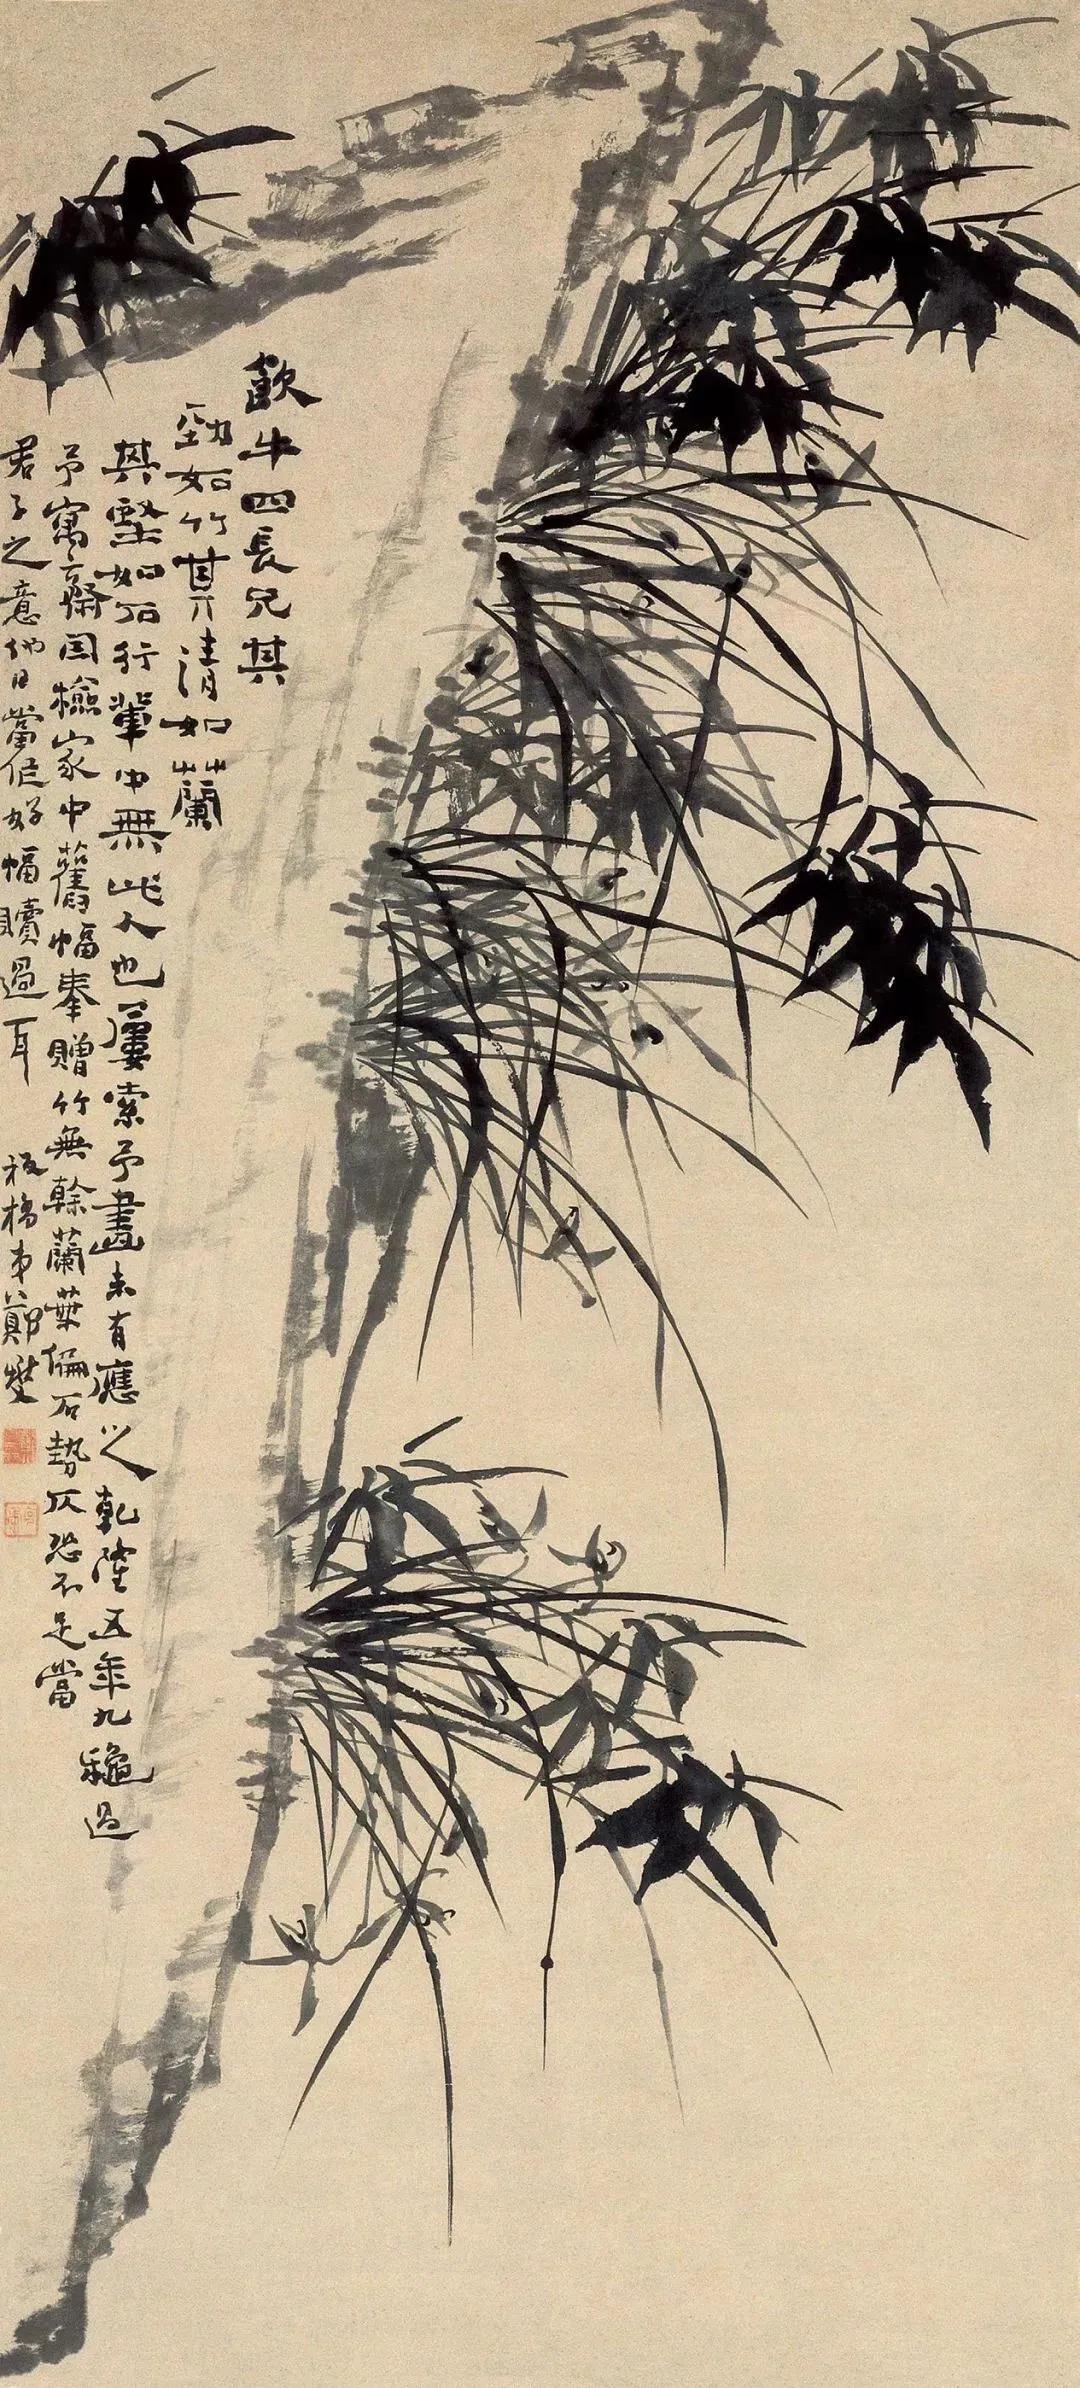 飲牛四長兄其
勁如竹其清如蘭
其堅如石行輩中無此人也屢索予畫未有應之乾隆五年九龝過
予寓齋因檢家中舊幅奉贈竹無幹蘭葉偏石勢仄恐不足當
君子之意他日當作好幅贖過耳 板橋弟鄭燮